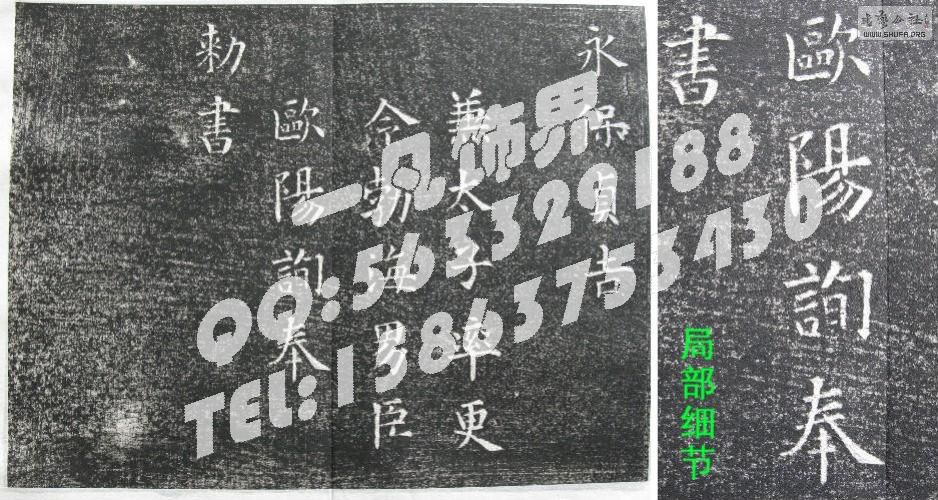 永保貞吉
兼太子率更
令勃海男臣
歐陽詢奉
勅書
一凡饰界
QQ:563329188
TEL:13863753430
歐陽詢奉
書
局部细节
公社
WWW.SHUFA.ORG